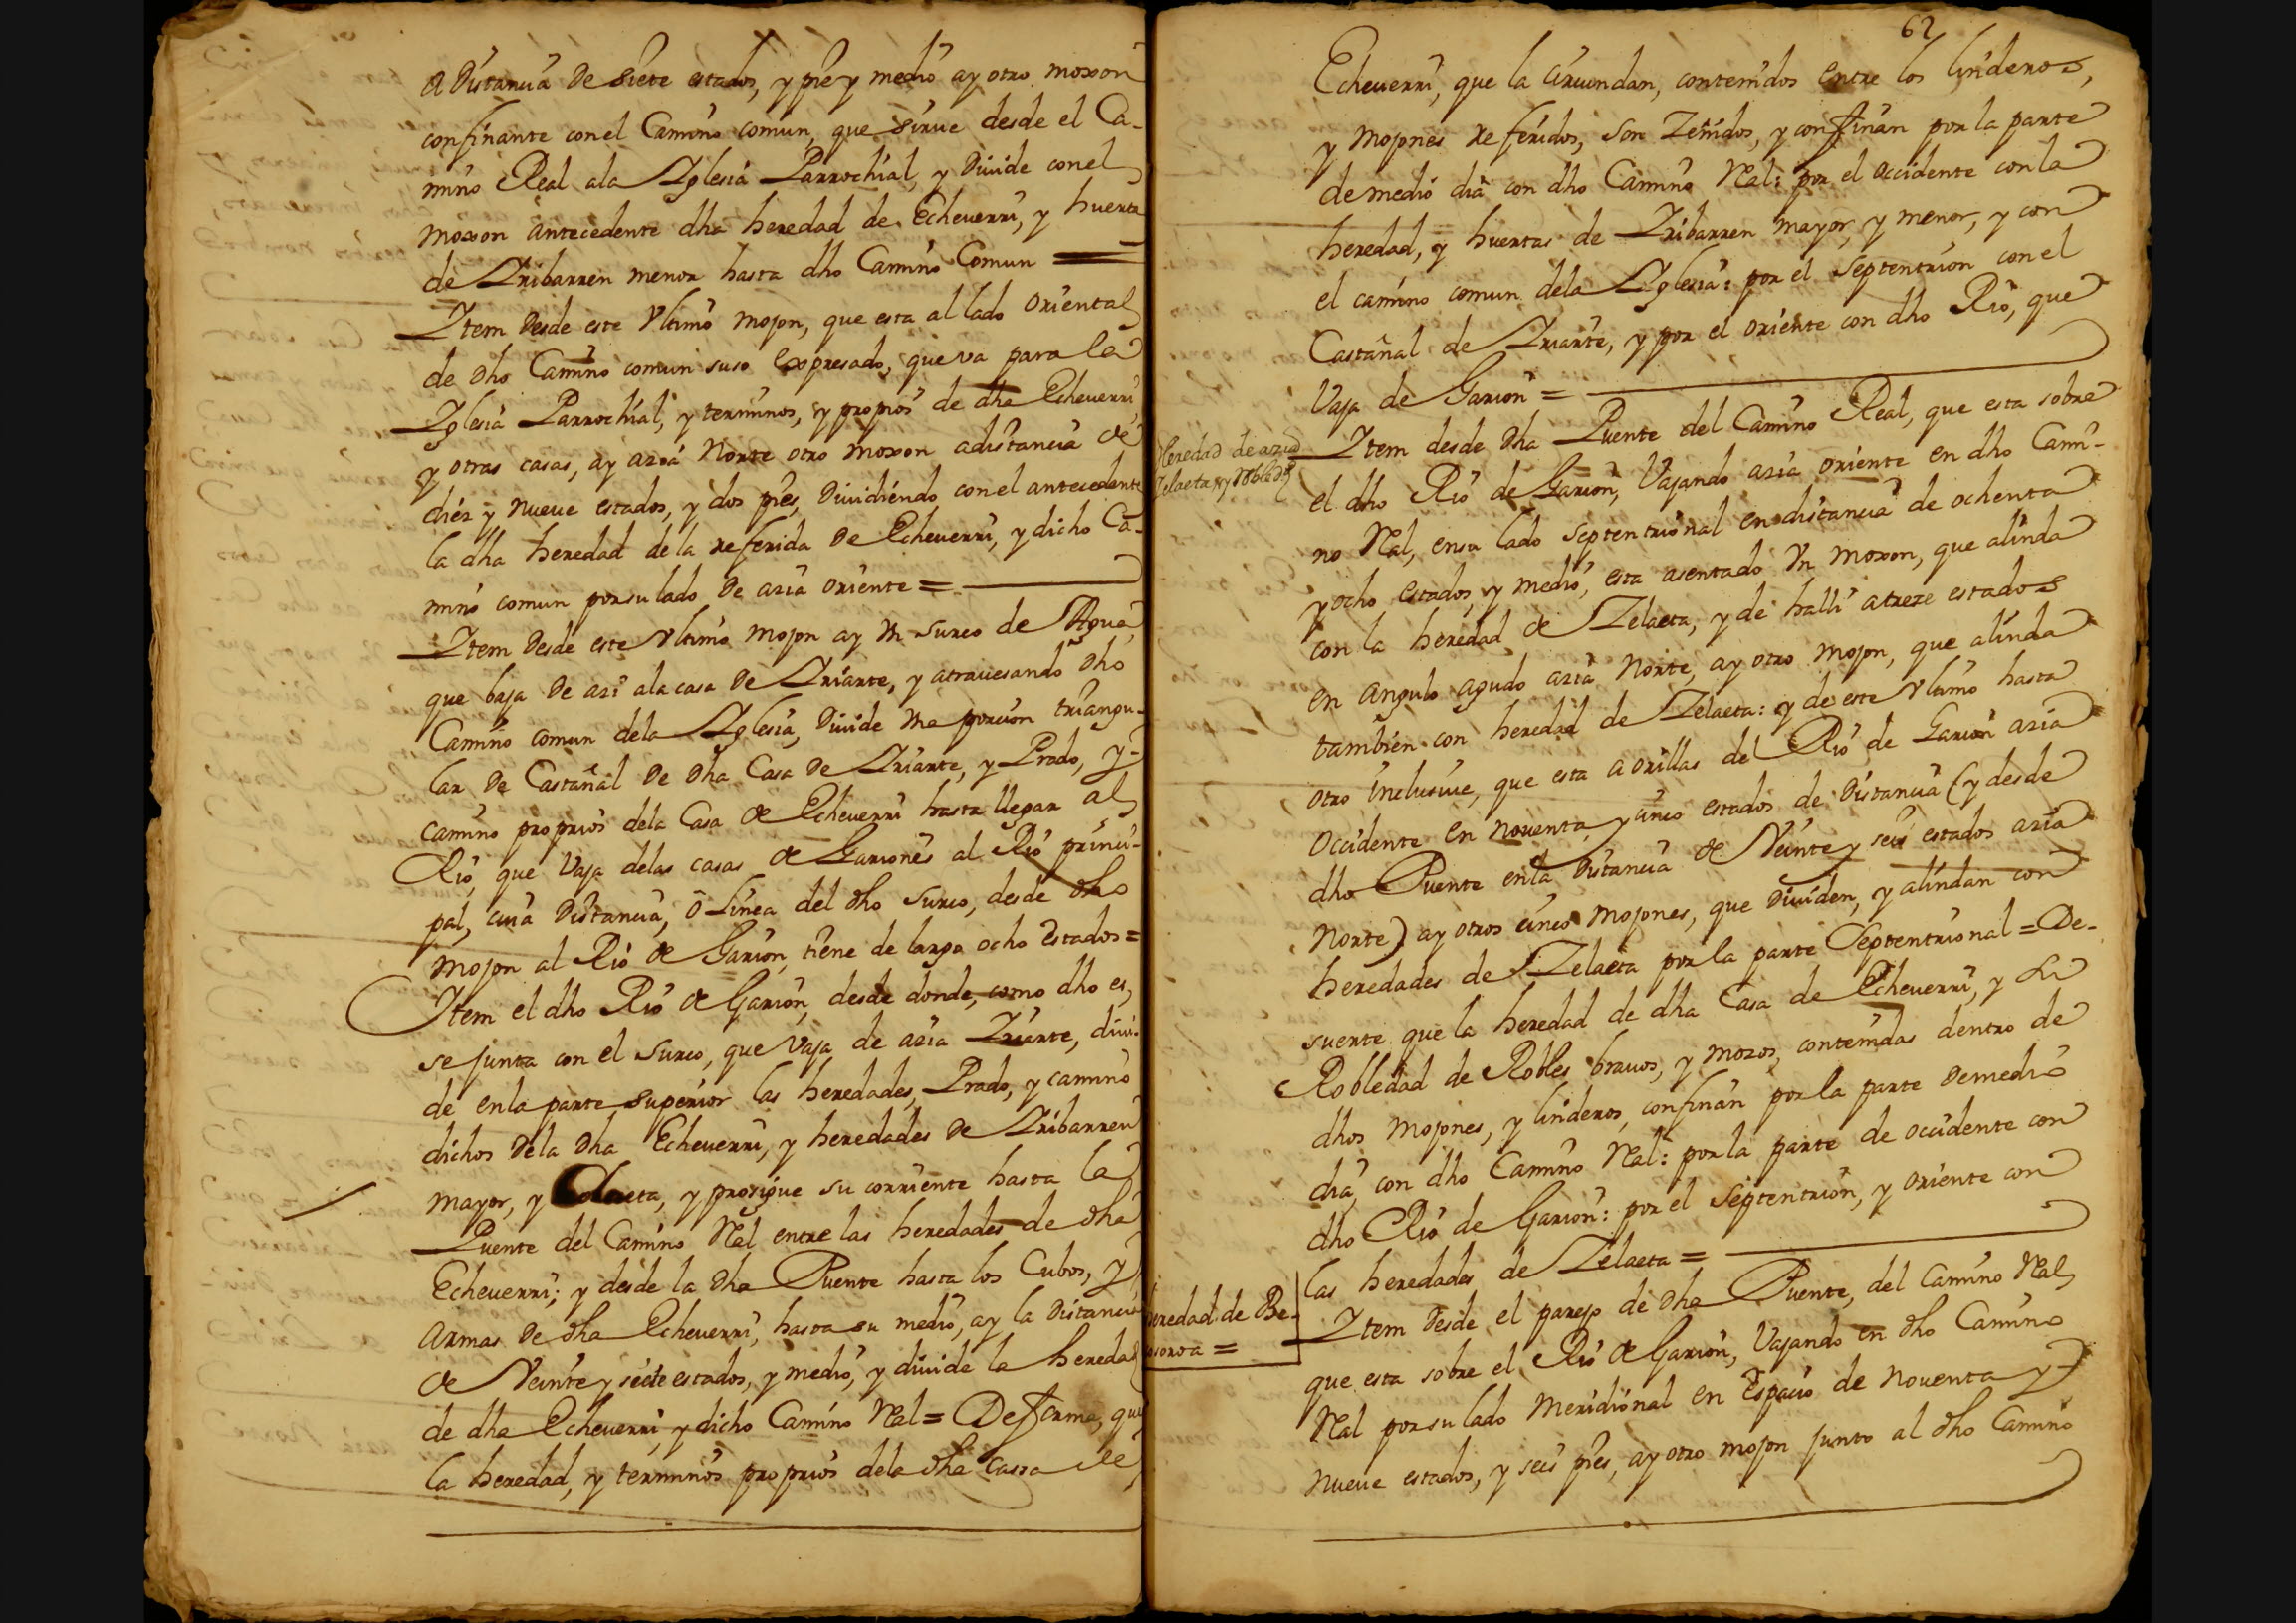 a Distancia de Siete estados, y pie y medio ay otro moxon
confinante con el Camino comun, que sirue desde el Ca-
mino Real ala Yglesia Parrochial, y Diuide con el
moxon antecedente dha heredad de Echeuerri, y huerta
de Yribarren menor hasta dho Camino Comun =
Ytem Desde este Vltimo mojon, que esta al lado Oriental
de dho Camino comun suso expresado, que va para la
Yglesia Parrochial, y terminos, y propios de dha Echeuerri,
y otras casas, ay azia Norte otro moxon adistancia de
diez y nueve estados, y dos pies, Diuidiendo con el antecedente
la dha heredad de la referida de Echeuerri, y dicho Ca-
mino comun por su lado De azia Oriente =
Ytem Desde este Vltimo mojon ay Vn surco de Agua,
que baja De azi ala casa De Yriarte, y atrauesando dho
Camino comun dela Yglesia, Diuide Vna porcion triangu-
lar De Castañal De Dha Casa De Yriarte, y Prado, y
camino proprios dela Casa de Echeuerri hasta llegar al
Rio, que Vaja delas casas de Gariones al Rio princi-
pal, cuia Distancia, ô Linea del dho Surco, desde dho
mojon al Rio de Garion, tiene de largo ocho Estados =
Ytem el dho Rio de Garion, desde donde, como dho es,
se junta con el Surco, que Vaja de azia Yriarte, diui-
de enla parte superior las heredades, Prado, y camino
dichos Dela Dha Echeuerri, y heredades De Yribarren
mayor, y Zelaeta, y prosigue su corriente hasta la
Puente del Camino Rl entre las heredades de dha
Echeuerri; y desde la Dha Puente hasta los Cubos, y
armas De dha Echeuerri, hasta su medio, ay la Distancia
de Veinte y siete estados, y medio, y diuide la heredad
de dha Echeuerri, y dicho Camino Rl = De forma, que
la heredad, y terminos proprios dela dha Cassa de
62
Echeuerri, que la circundan, contenidos entre los linderos,
y Mojones referidos, son Zeñidos, y confinan por la parte
de medio dia con dho Camino Rl: por el Occidente con la
heredad, y huertas de Yribarren mayor, y menor, y con
el camino comun dela Yglesia: por el Septentrion con el
Castañal de Yriarte, y por el Oriente con dho Rio, que
Vaja de Garion =
Heredad de azia
Zelaeta, y Robledal
Ytem desde Dha Puente del Camino Real, que esta sobre
el dho Rio de Garion, Vajando azia Oriente en dho Cami-
no Rl, en su lado Septentrional en distancia de ochenta
y ocho estados, y medio, esta asentado Vn moxon, que alinda
con la heredad de Zelaeta, y de halli atreze estados
en angulo agudo azia Norte, ay otro mojon, que alinda
tambien con heredad de Zelaeta: y de este Vltimo hasta
otro inclusiue, que esta a orillas del Rio de Garion azia
Occidente en nouenta y cinco estados de Distancia (y desde
dho Puente enla Distancia de Veinte y seis estados azia
Norte) ay otros cinco Mojones, que Diuiden, y alindan con
heredades de Zelaeta por la parte Septentrional = De-
suerte que la heredad de dha Casa de Echeuerri, y su
Robledad de Robles brauos, y mozos, contenidas dentro de
dhos mojones, y linderos, confinan por la parte Demedio
dia, con dho Camino Rl: por la parte de occidente con
dho Rio de Garion: por el Septentrion, y Oriente con
las heredades de Zelaeta =
heredad de Be-
=
Ytem Desde el parejo de Dha Puente, del Camino Rl,
que esta sobre el Rio de Garion, Vajando en dho Camino
Rl por su lado Meridional en Espacio de nouenta y
nueue estados, y seis pies, ay otro mojon junto al dho Camino